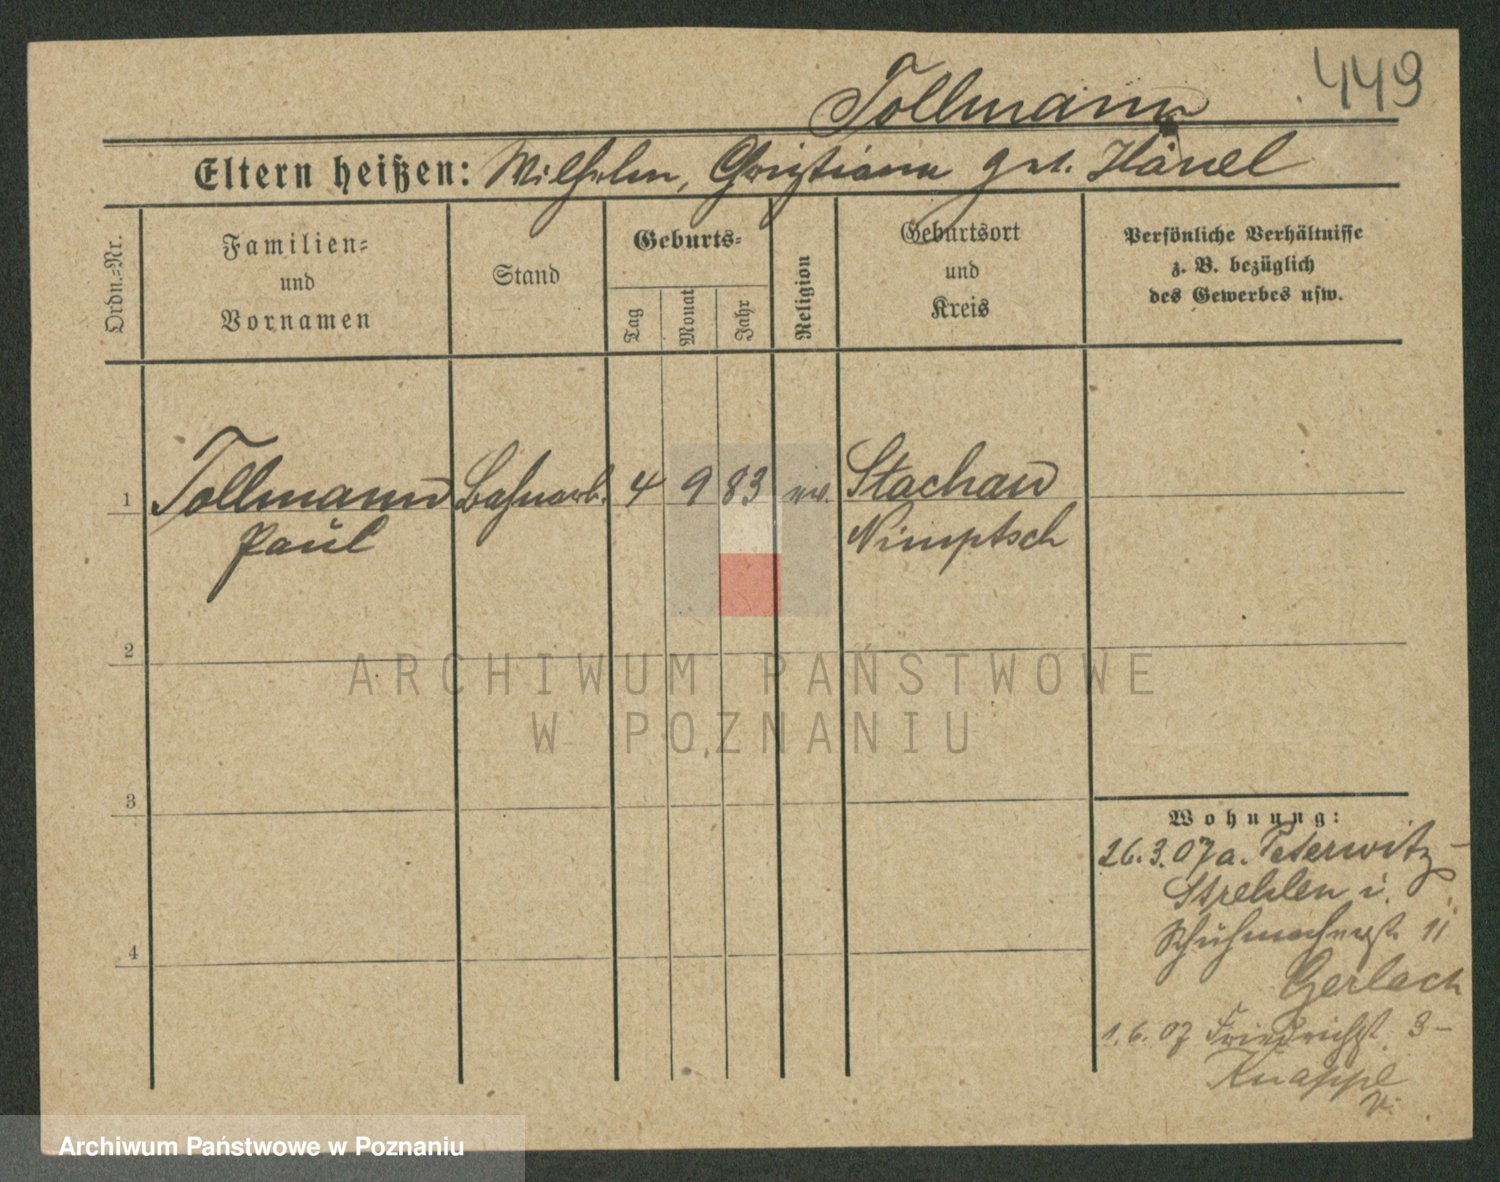 449
Tollmann
Eltern heißen: Wilhelm, Christiane geb. Hänel
Ordn.-Nr.
Familien-
und
Vornamen
Stand
Geburts-
Tag
Monat
Jahr
Religion
Geburtsort
und
Kreis
Persönliche Verhältnisse
z. B. bezüglich
des Gewerbes usw.
1 Tollmann Bahnarb. 4 9 83 ev. Stachau
Paul Nimptsch
2
3
4
Wohnung:
26.3.07 a. Peterwitz-
Strehlen i.
Schuhmacherst. 11
Gerlach
1.6.07 Friedrichst. 3-
Knappe
ARCHIWUM PAŃSTWOWE
W POZNANIU
Archiwum Państwowe w Poznaniu